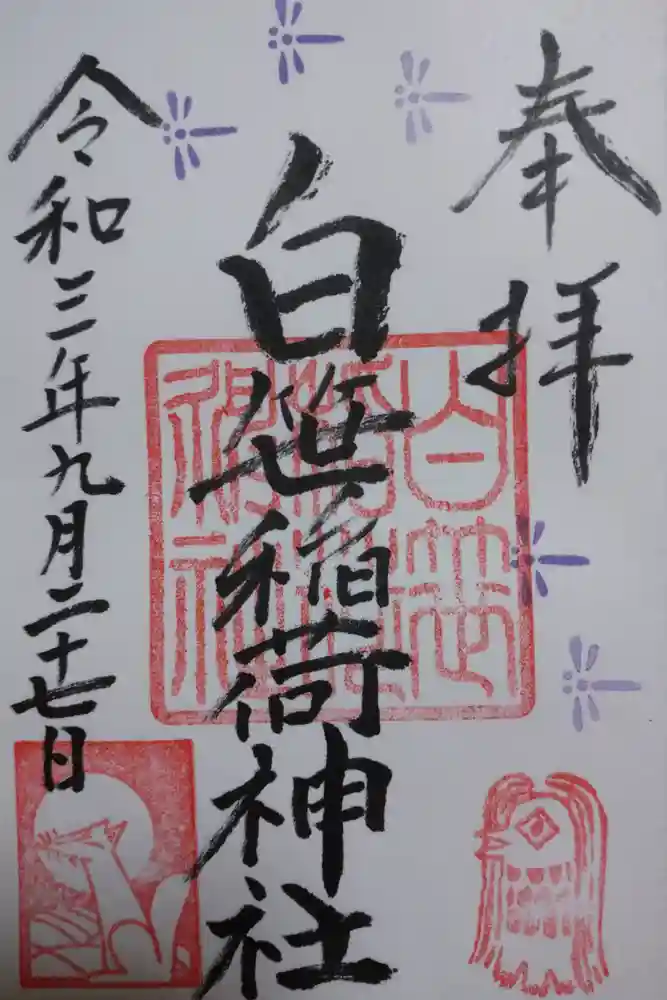 奉拝
白笹稲荷神社
令和三年九月二十七日
白笹
稲荷
神社